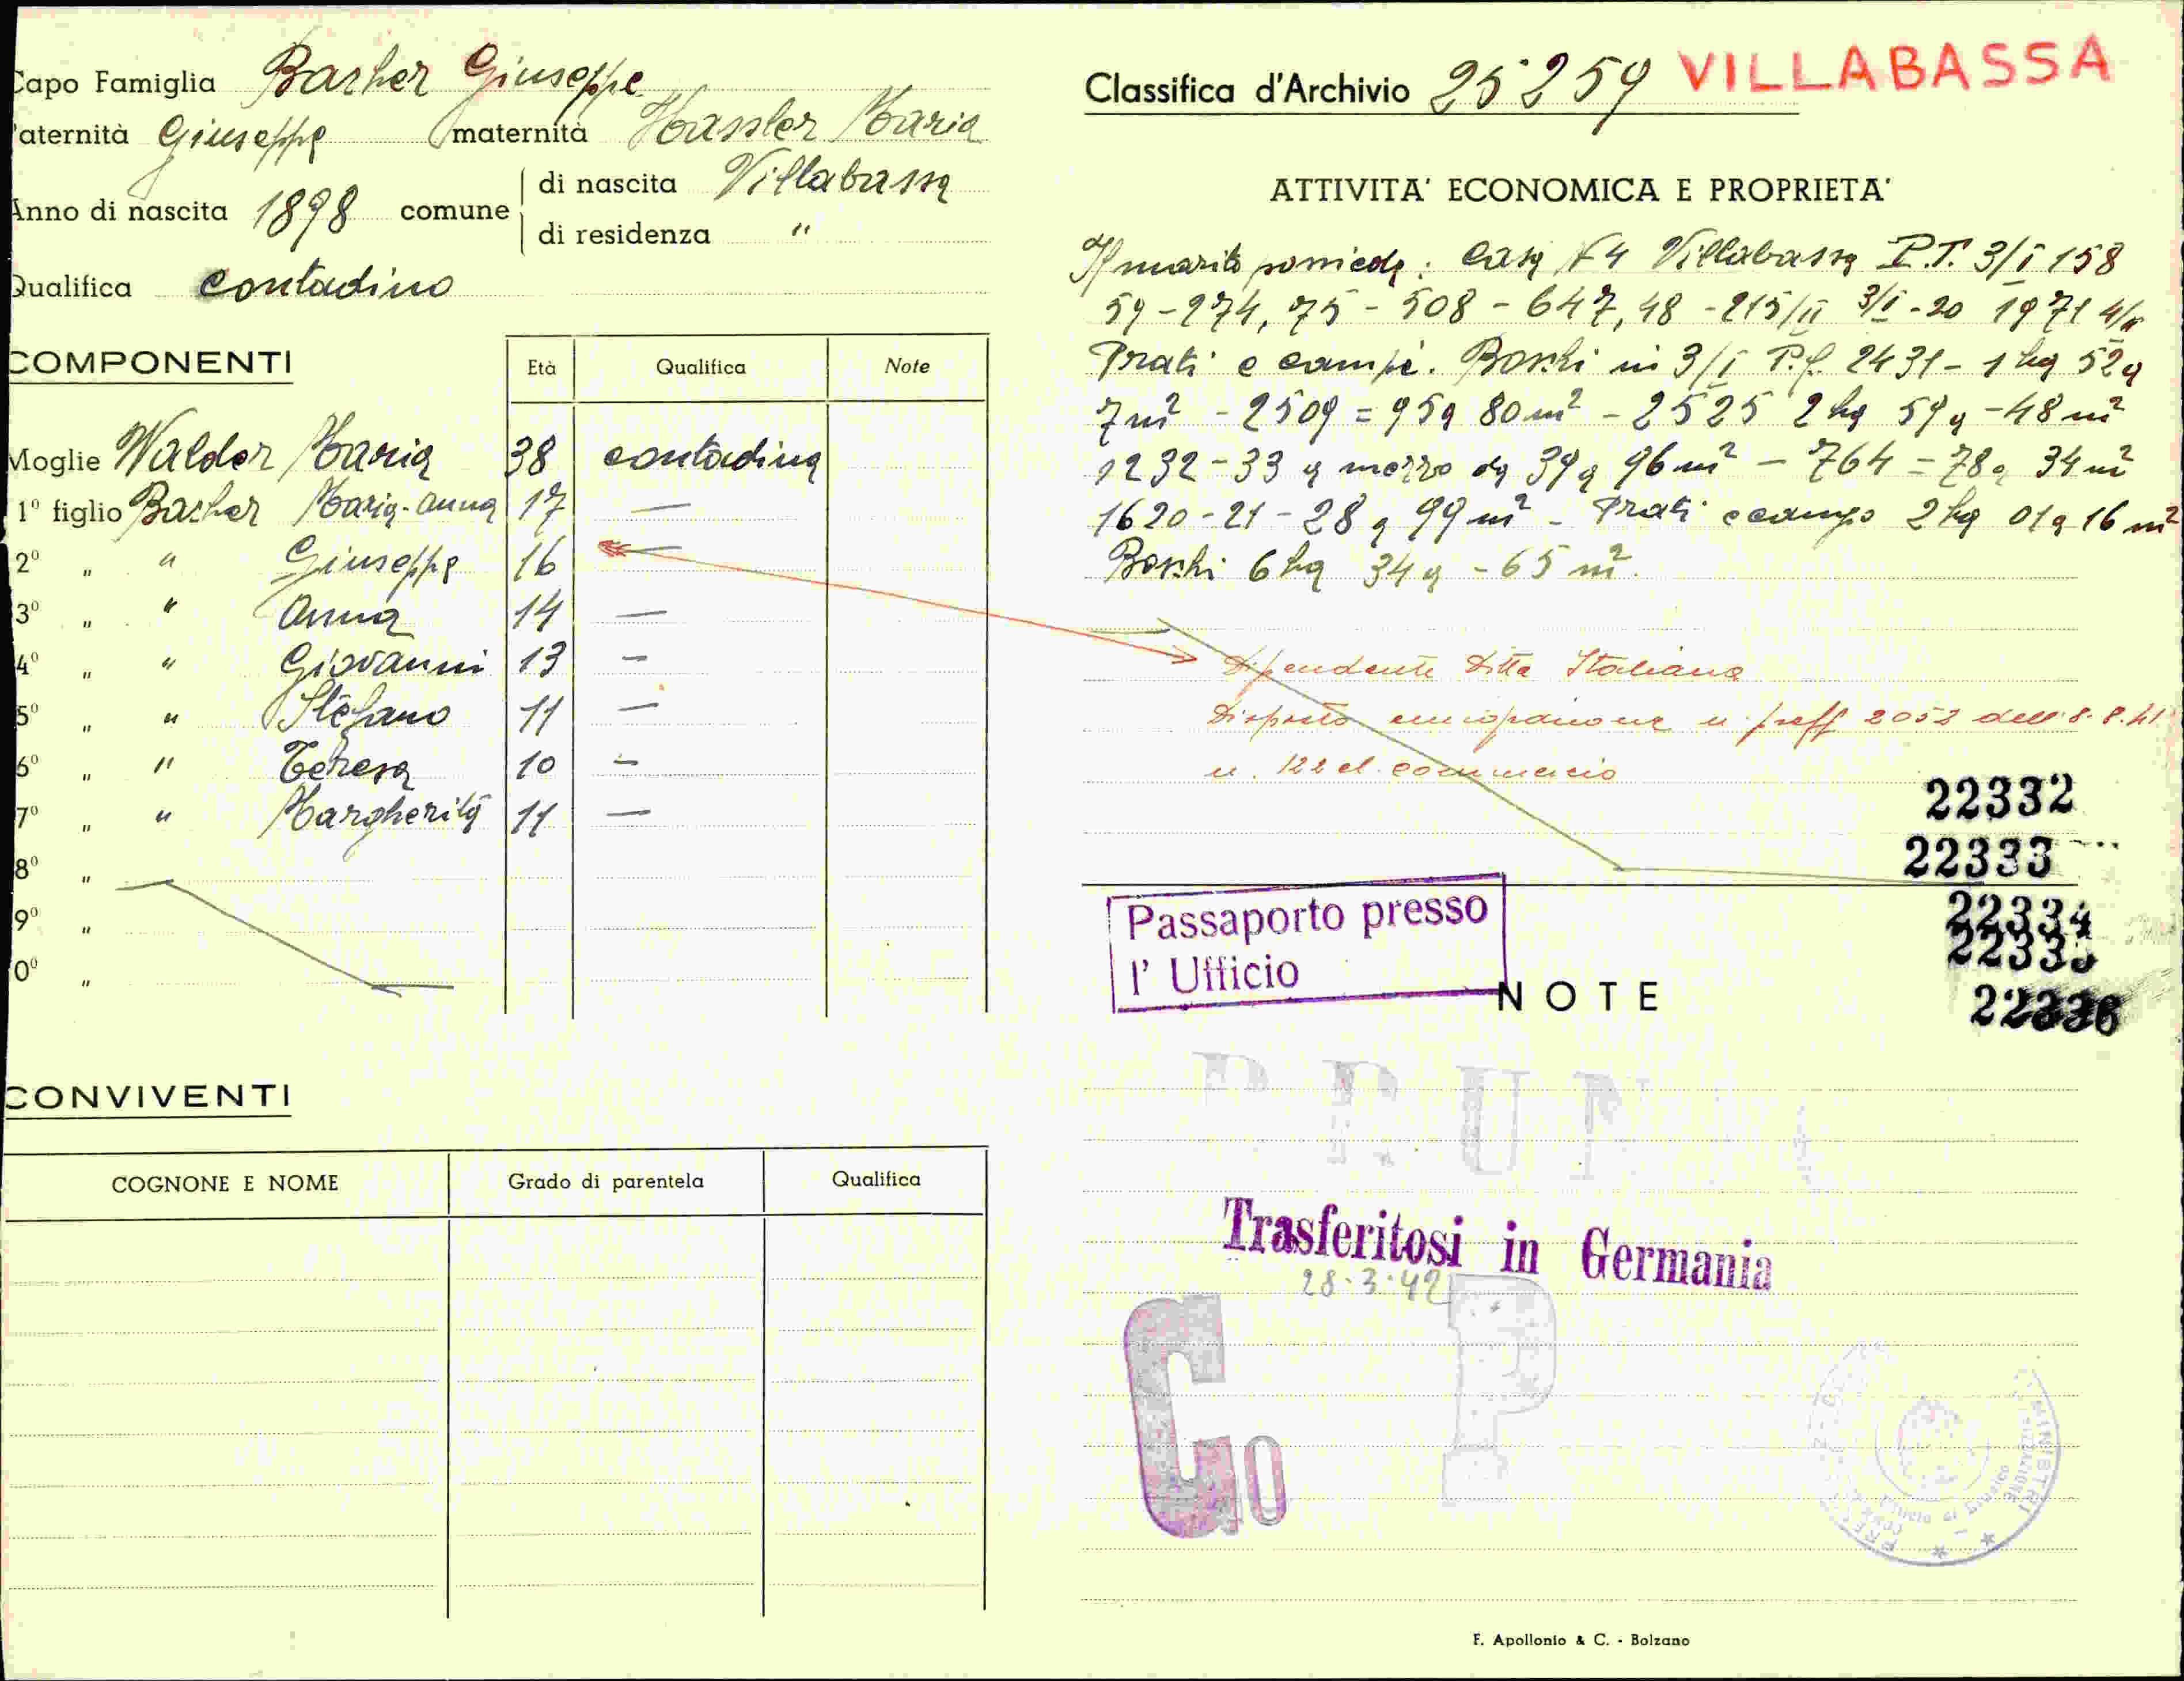 Capo Famiglia Bacher Giuseppe
Paternità Giuseppe maternità Hassler Maria
Anno di nascita 1898 comune di nascita Villabassa
di residenza "
Qualifica contadino
COMPONENTI Età Qualifica Note
Moglie Walder Maria 38 contadina
1º figlio Bacher Maria-Anna 17 —
2º " " Giuseppe 16 —
3º " " Anna 14 —
4º " " Giovanni 13 —
5º " " Stefano 11 —
6º " " Teresa 10 —
7º " " Margherita 11 —
8º "
9º "
0º "
CONVIVENTI
COGNONE E NOME Grado di parentela Qualifica
Classifica d'Archivio 25259 VILLABASSA
ATTIVITA' ECONOMICA E PROPRIETA'
Il marito possiede: Casa N 4 Villabassa P.T. 3/I 158
59-274,75-508-647,48-215/II 3/I-20 1971 4/II
Prati e campi. Boschi in 3/I P.f. 2431-1 ha 52a
7m² -2509=95a 80m² -2525 2ha 59a-48m²
1232-33 a mezzo da 39a 96m² -764=78a 34m²
1620-21-28a 99m² - Prati e campo 2ha 01a 16m²
Boschi 6ha 34a-65m².
Dipendente Ditta Italiana
n. pref 2052 dell 8.8.41
n. 122 commercio
22332
22333
22334
22335
22336
Passaporto presso
l' Ufficio
NOTE
Trasferitosi in Germania
28.3.42
P
Go
F. Apollonio & C. - Bolzano